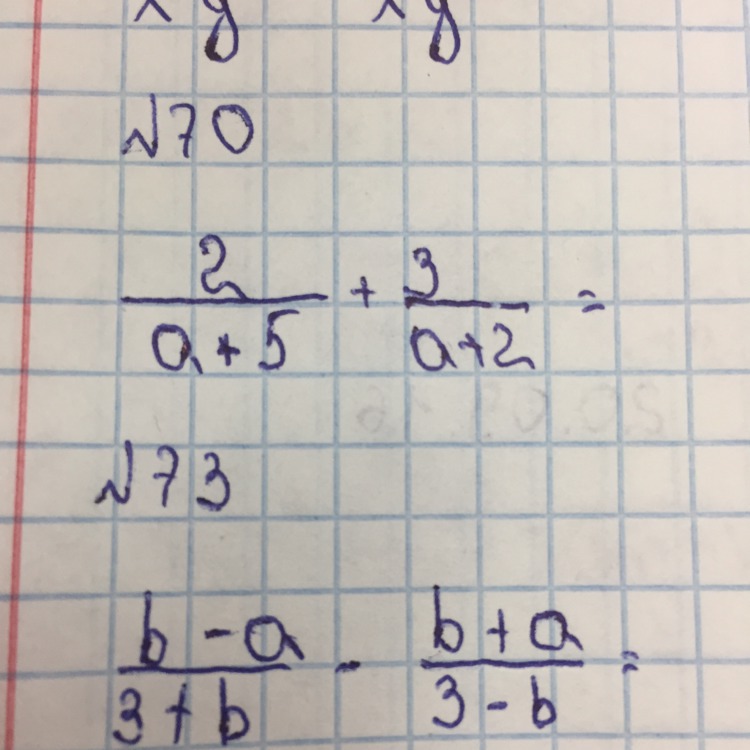 xy xy
№70
2/(a+5) + 3/(a+2) =
№73
(b-a)/(3+b) - (b+a)/(3-b) =